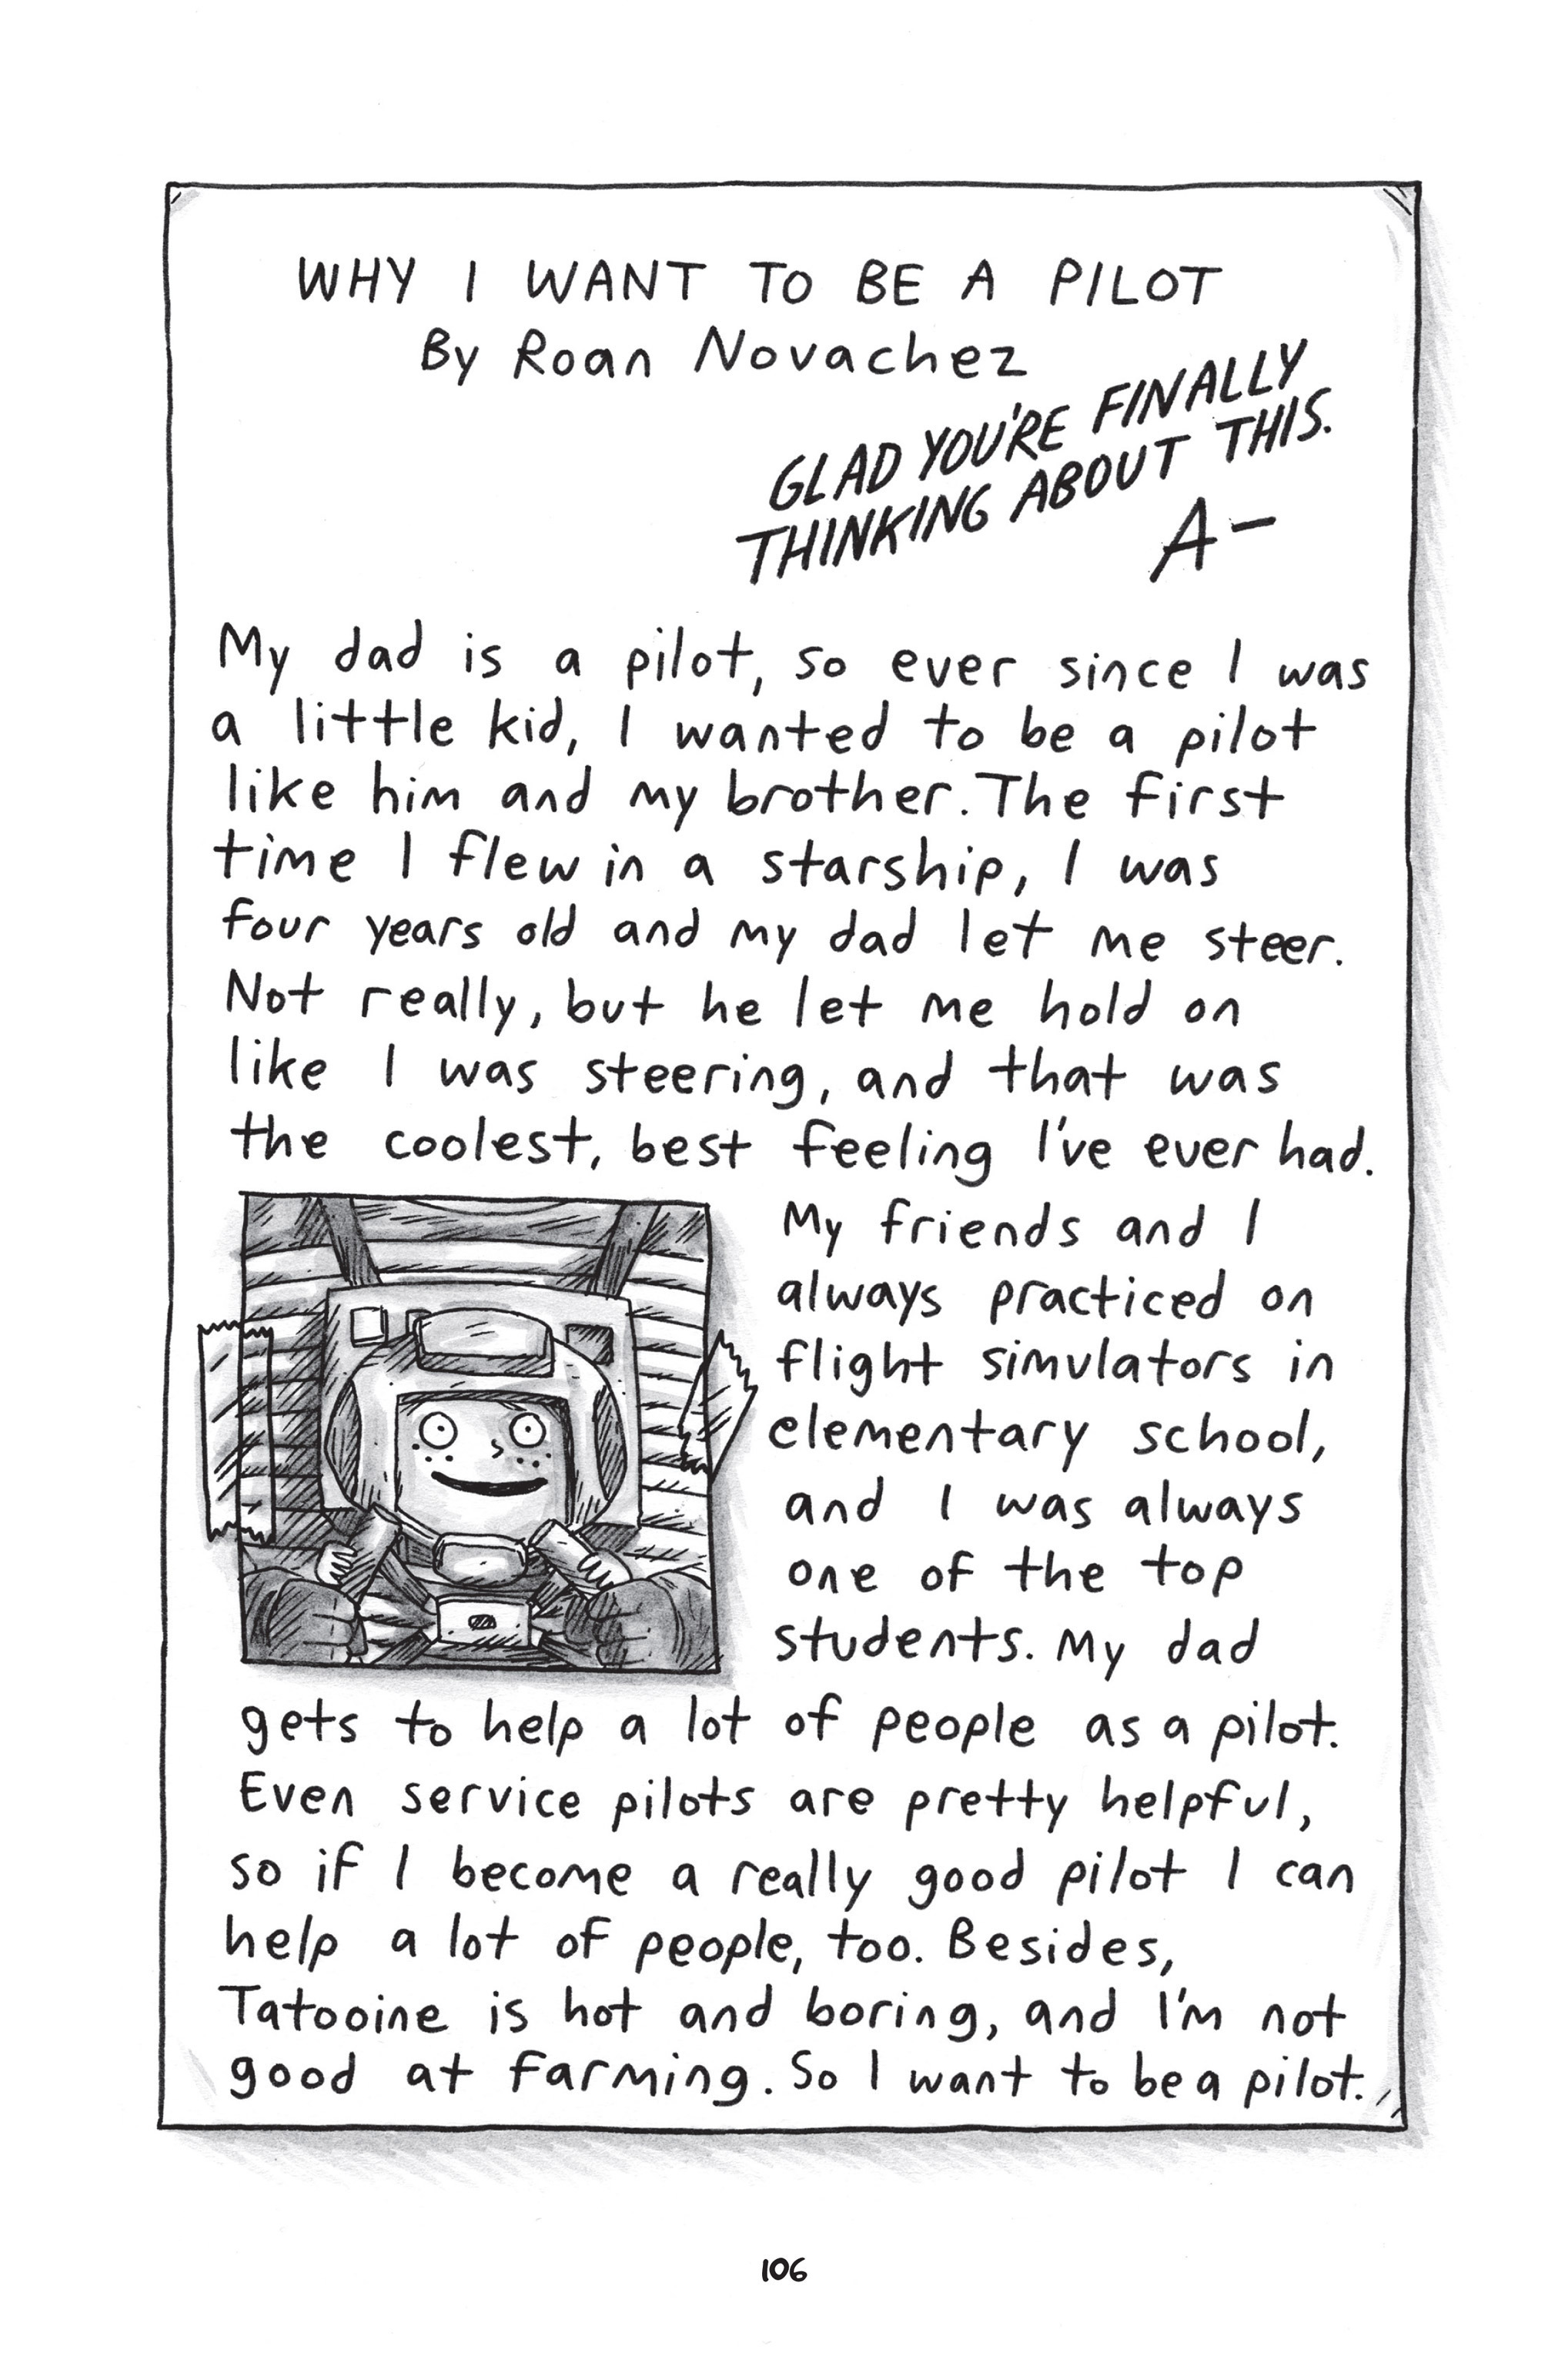 WHY I WANT TO BE A PILOT
By Roan Novachez
GLAD YOU'RE FINALLY
THINKING ABOUT THIS.
A-
My dad is a pilot, so ever since I was
a little kid, I wanted to be a pilot
like him and my brother. The first
time I flew in a starship, I was
four years old and my dad let me steer.
Not really, but he let me hold on
like I was steering, and that was
the coolest, best feeling I've ever had.
My friends and I
always practiced on
flight simulators in
elementary school,
and I was always
one of the top
students. My dad
gets to help a lot of people as a pilot.
Even service pilots are pretty helpful,
so if I become a really good pilot I can
help a lot of people, too. Besides,
Tatooine is hot and boring, and I'm not
good at farming. So I want to be a pilot.
106